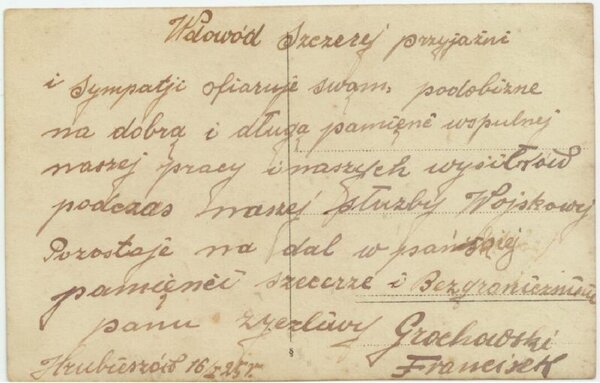 Wdowód Szczerej przyjaźni
i Sympatji ofiaruje swąm podobizne
na dobrą i długą pamięnć wspulnej
naszej pracy i naszych wysiłków
podczas naszej służby Wojskowej
Pozostaje na dal w pańskiej
pamięnći szczerze i Bezgranicznie
panu zyczliwy Grochowski
Hrubieszów 16/I 25 r. Franciszek